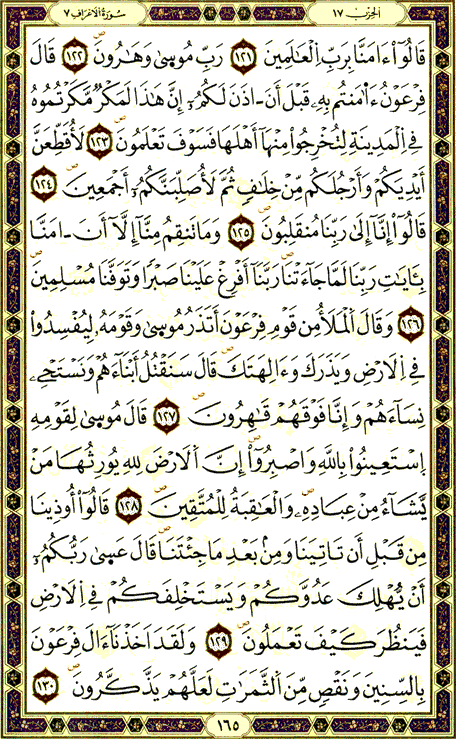 الحِزْب ١٧
سُورَةُ الأَعْرَاف ٧
قَالُوٓاْ ءَامَنَّا بِرَبِّ اِ۬لْعَٰلَمِينَ ١٢١ رَبِّ مُوسىٰ وَهَٰرُونَۖ ١٢٢ قَالَ
فِرْعَوْنُ ءَا۬مَنتُم بِهِۦ قَبْلَ أَنَ ـ اذَنَ لَكُمُۥٓۖ إِنَّ هَٰذَا لَمَكْرٞ مَّكَرْتُمُوهُ
فِے اِ۬لْمَدِينَةِ لِتُخْرِجُواْ مِنْهَآ أَهْلَهَا فَسَوْفَ تَعْلَمُونَۖ ١٢٣ لَأُقَطِّعَنَّ
أَيْدِيَكُمْ وَأَرْجُلَكُم مِّنْ خِلَٰفٖ ثُمَّ لَأُصَلِّبَنَّكُمُۥٓ أَجْمَعِينَۖ ١٢٤
قَالُوٓاْ إِنَّآ إِلَىٰ رَبِّنَا مُنقَلِبُونَۖ ١٢٥ وَمَا تَنقِمُ مِنَّآ إِلَّآ أَنَ ـ امَنَّا
بِـَٔايَٰتِ رَبِّنَا لَمَّا جَآءَتْنَاۖ رَبَّنَآ أَفْرِغْ عَلَيْنَا صَبْراٗ وَتَوَفَّنَا مُسْلِمِينَۖ
١٢٦ وَقَالَ اَ۬لْمَلَأُ مِن قَوْمِ فِرْعَوْنَ أَتَذَرُ مُوسىٰ وَقَوْمَهُۥ لِيُفْسِدُواْ
فِے اِ۬لَارْضِ وَيَذَرَكَ وَءَالِهَتَكَۖ قَالَ سَنَقْتُلُ أَبْنَآءَهُمْ وَنَسْتَحْيِۦ
نِسَآءَهُمْ وَإِنَّا فَوْقَهُمْ قَٰهِرُونَۖ ١٢٧ قَالَ مُوسىٰ لِقَوْمِهِ
اِ۪سْتَعِينُواْ بِاللَّهِ وَاصْبِرُوٓاْۖ إِنَّ اَ۬لَارْضَ لِلهِ يُورِثُهَا مَنْ
يَّشَآءُ مِنْ عِبَادِهِۦۖ وَالْعَٰقِبَةُ لِلْمُتَّقِينَۖ ١٢٨ قَالُوٓاْ أُوذِينَا
مِن قَبْلِ أَن تَاتِيَنَا وَمِنۢ بَعْدِ مَا جِئْتَنَاۖ قَالَ عَسىٰ رَبُّكُمُۥٓ
أَنْ يُّهْلِكَ عَدُوَّكُمْ وَيَسْتَخْلِفَكُمْ فِے اِ۬لَارْضِ
فَيَنظُرَ كَيْفَ تَعْمَلُونَۖ ١٢٩ وَلَقَدَ اَخَذْنَآ ءَالَ فِرْعَوْنَ
بِالسِّنِينَ وَنَقْصٖ مِّنَ اَ۬لثَّمَرَٰتِ لَعَلَّهُمْ يَذَّكَّرُونَۖ ١٣٠
١٦٥